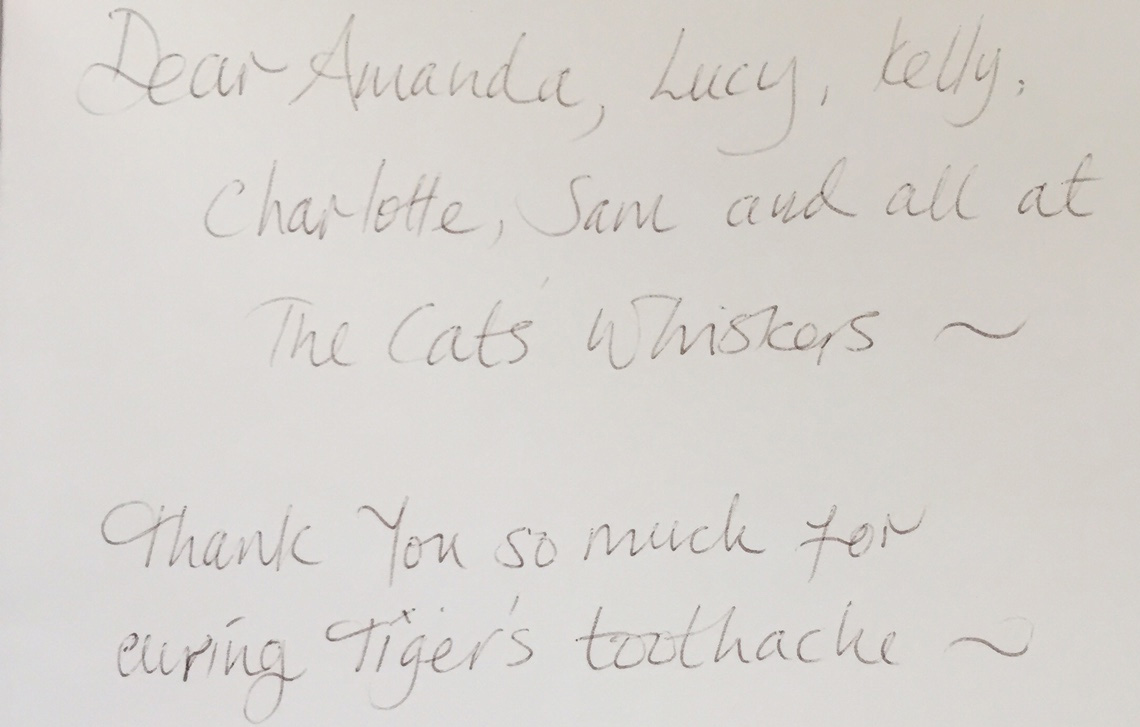 Dear Amanda, Lucy, Kelly,
Charlotte, Sam and all at
The Cats' Whiskers ~
Thank You so much for
curing Tiger's toothache ~